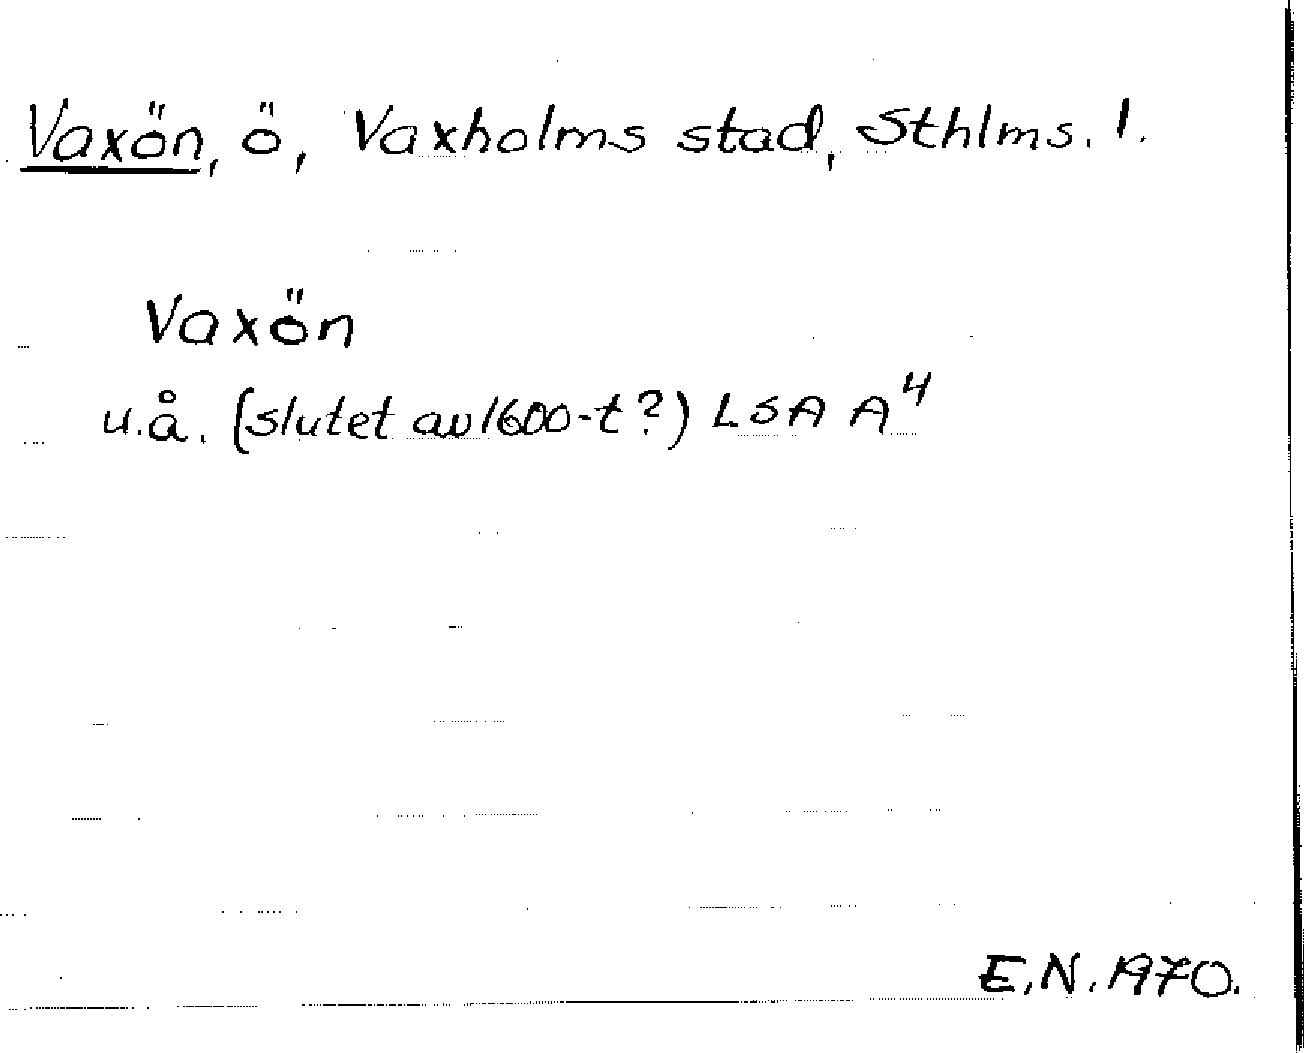 Vaxön, ö, Vaxholms stad, Sthlms. l.
Vaxön
u.å. (slutet av 1600-t?) LSA A⁴
E.N. 1970.